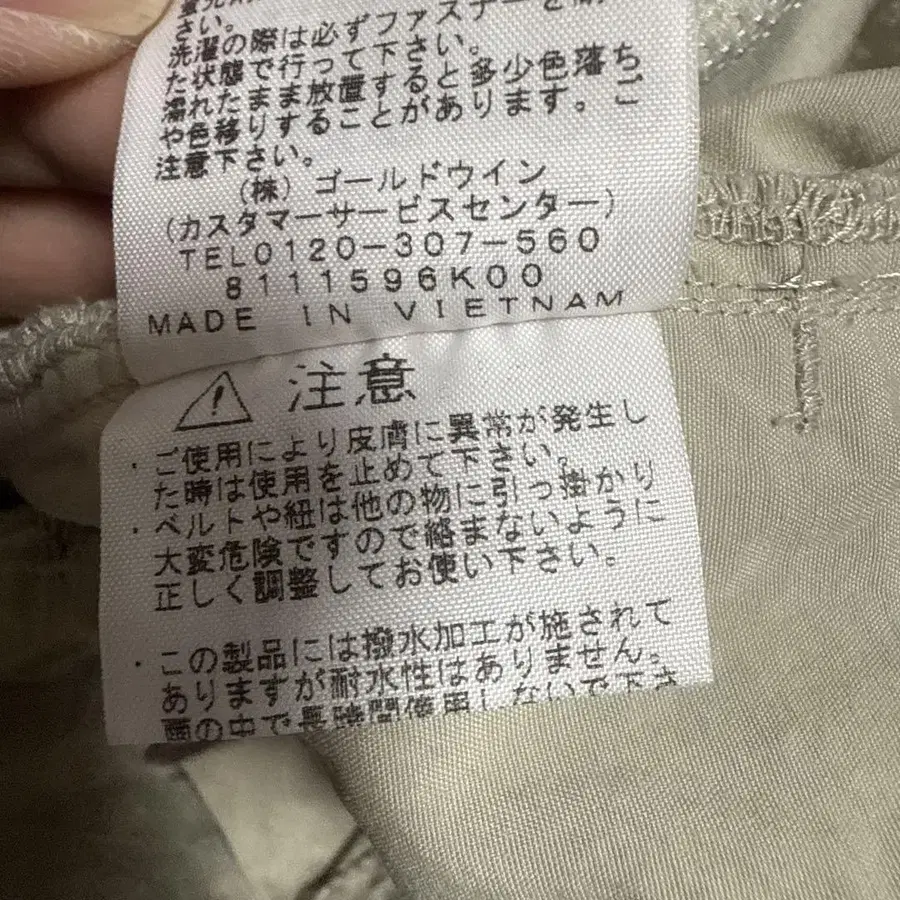 さい。
洗濯の際は必ずファスナーを
た状態で行って下さい。
濡れたまま放置すると多少色落ち
や色移りすることがあります。ご
注意下さい。
(株) ゴールドウイン
(カスタマーサービスセンター)
TEL0120-307-560
8111596K00
MADE IN VIETNAM
注意
・ご使用により皮膚に異常が発生し
た時は使用を止めて下さい。
・ベルトや紐は他の物に引っ掛かり
大変危険ですので絡まないように
正しく調整してお使い下さい。
・この製品には撥水加工が施されて
ありますが耐水性はありません。
雨の中で長時間使用しないで下さ